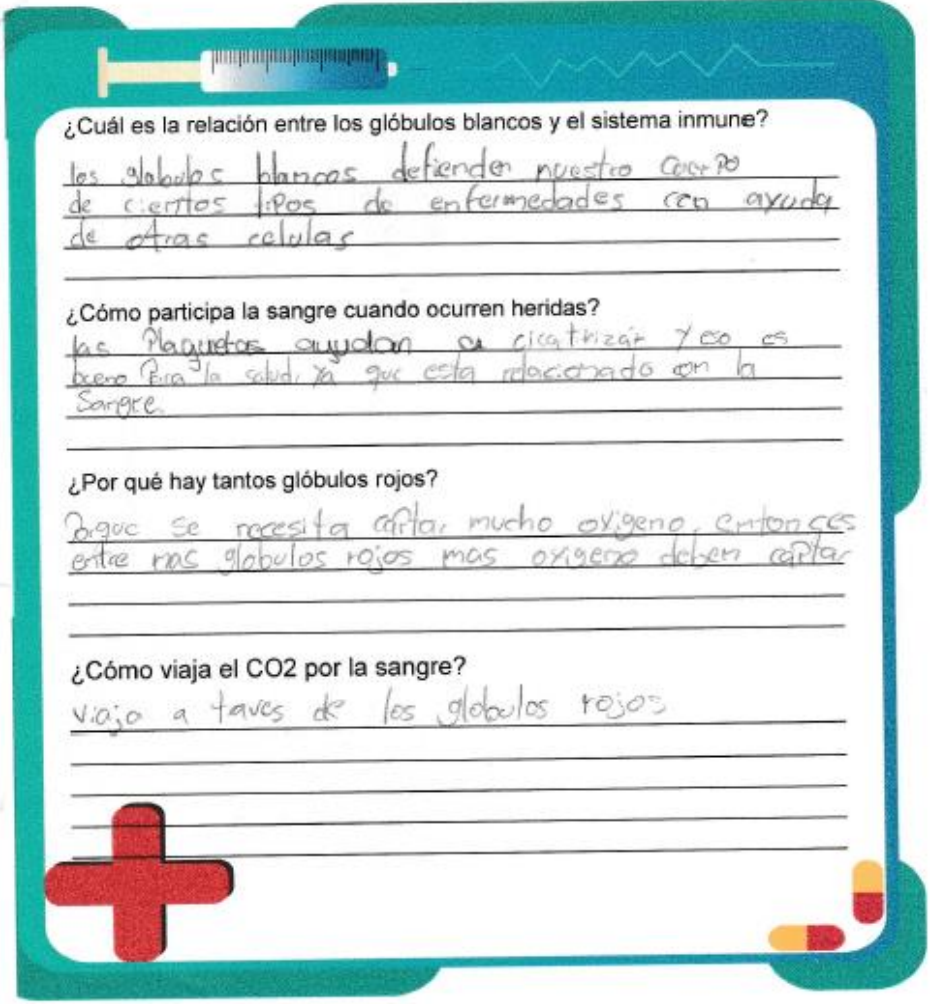 ¿Cuál es la relación entre los glóbulos blancos y el sistema inmune?
los globulos blancos defienden nuestro cuerpo
de cierttos tipos de enfermedades con ayuda
de otras celulas
¿Cómo participa la sangre cuando ocurren heridas?
las Plaquetas ayudan a cicatrizar y eso es
bueno Para la salud, ya que esta relacionado con la
Sangre.
¿Por qué hay tantos glóbulos rojos?
Porque se necesita captar mucho oxigeno, entonces
entre mas globulos rojos mas oxigeno deben captar
¿Cómo viaja el CO2 por la sangre?
viaja a taves de los globulos rojos